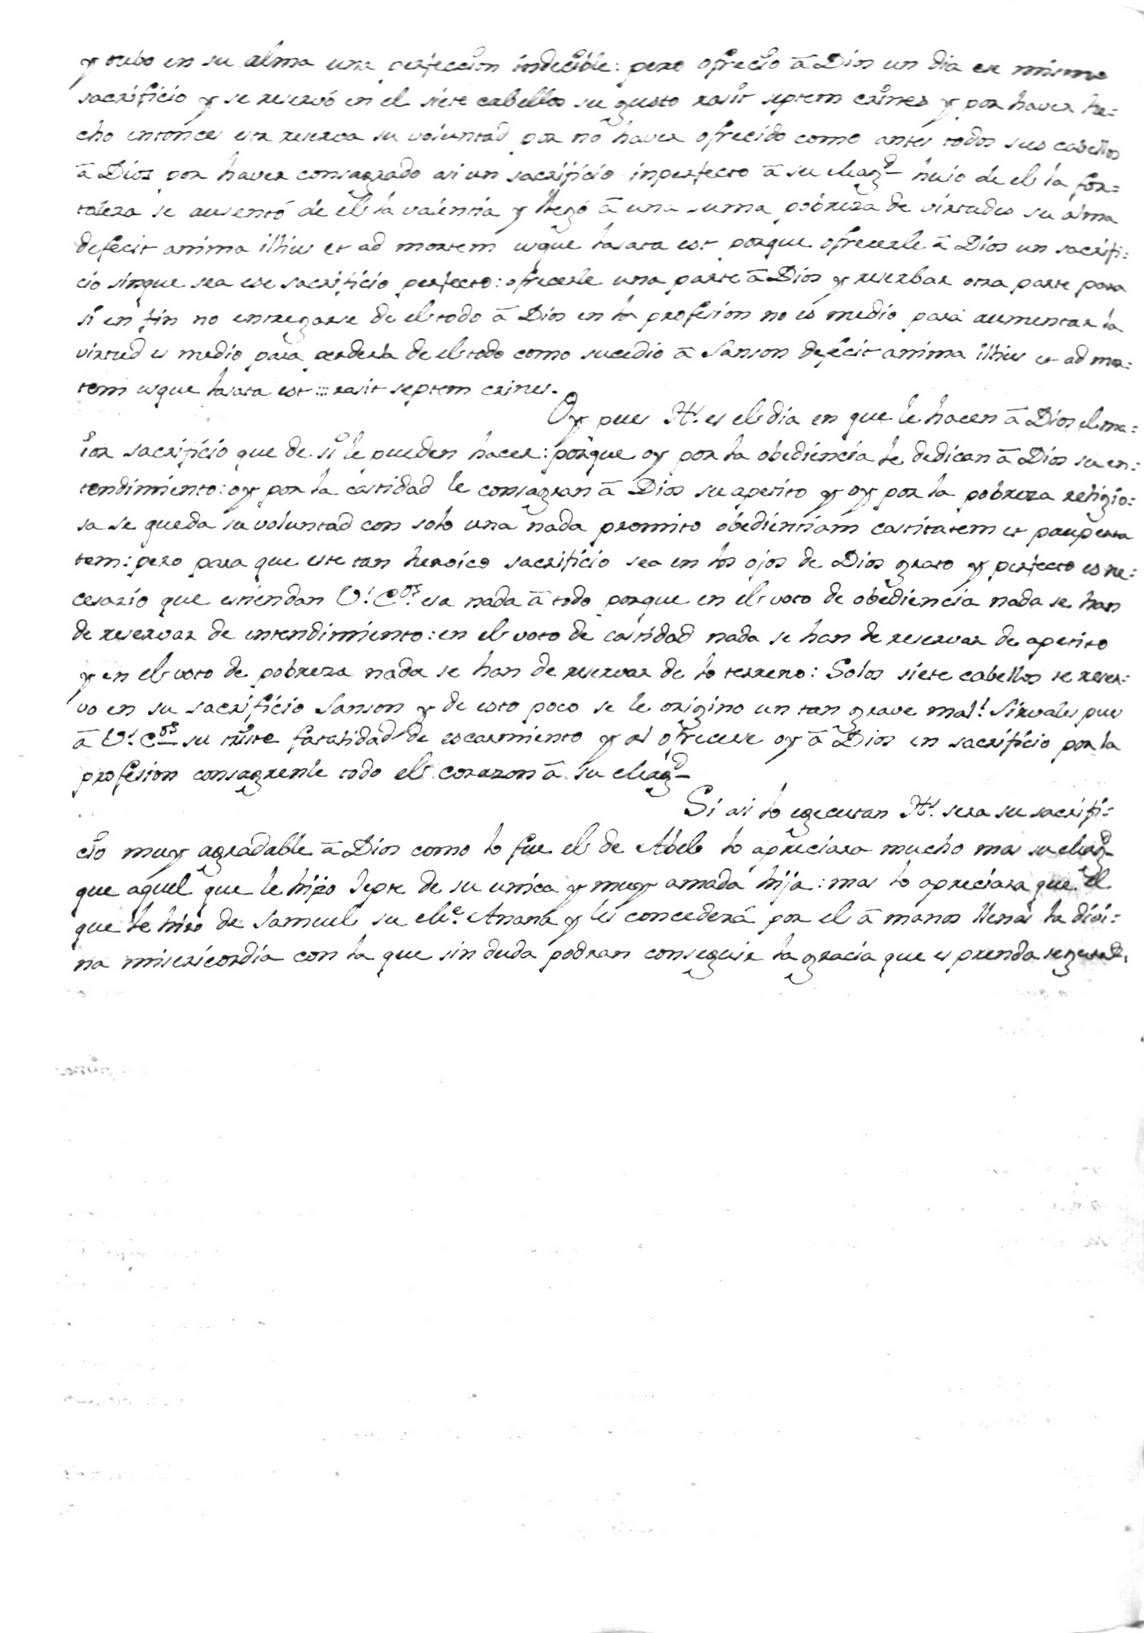 y tubo en su alma una perfeccion indecible: pero ofrecio â Dios un dia ese mismo
sacrificio y se reservó en el siete cabellos su gusto rasit septem crines y por haver he:
cho entonces esta reserva su voluntad por no haver ofrecido como antes todos sus cabellos
â Dios por haver consagrado asi un sacrificio inperfecto â su Mag.d huio de el la for:
taleza se ausentó de el la valentia y llegó â una suma pobreza de virtudes su alma
defecit anima illius et ad mortem usque lasata est porque ofrecerle â Dios un sacrifi:
cio sinque sea ese sacrificio perfecto: ofrecerle una parte â Dios y reserbar otra parte para
si en fin no entregarse de el todo â Dios en la profesion no es medio para aumentar la
virtud es medio para perderla de el todo como sucedio â Sanson defecit anima illius et ad mor:
tem usque lasata est ::: rasit septem crines.
Oy pues H.s es el dia en que le hacen â Dios el ma:
ior sacrificio que de si le pueden hacer: porque oy por la obediencia le dedican â Dios su en:
tendimiento: oy por la castidad le consagran â Dios su apetito y oy por la pobreza religio:
sa se queda su voluntad con solo una nada promito obedientiam castitatem et paupertа
tem: pero para que este tan heroico sacrificio sea en los ojos de Dios grato y perfecto es ne:
cesario que estiendan V.s C.os esa nada â todo porque en el voto de obediencia nada se han
de reservar de entendimiento: en el voto de castidad nada se han de reservar de apetito
y en el voto de pobreza nada se han de reservar de lo terreno: Solos siete cabellos se reser:
vo en su sacrificio Sanson y de esto poco se le origino un tan grave mal! Sirvales pues
â V.s C.os su triste fatalidad de escarmiento y al ofrecerse oy â Dios en sacrificio por la
profesion consagrenle todo el corazon â su Mag.d
Si asi lo egecutan H.s sera su sacrifi:
cio muy agradable â Dios como lo fue el de Abel: lo apreciara mucho mas su Mag.d
que aquel que le hizo Jepte de su unica y muy amada hija: mas lo apreciara que el
que le hizo de Samuel su M.e Anana y les concederá por el â manos llenas la divi:
na misericordia con la que sin duda podran conseguir la gracia que es prenda segura de